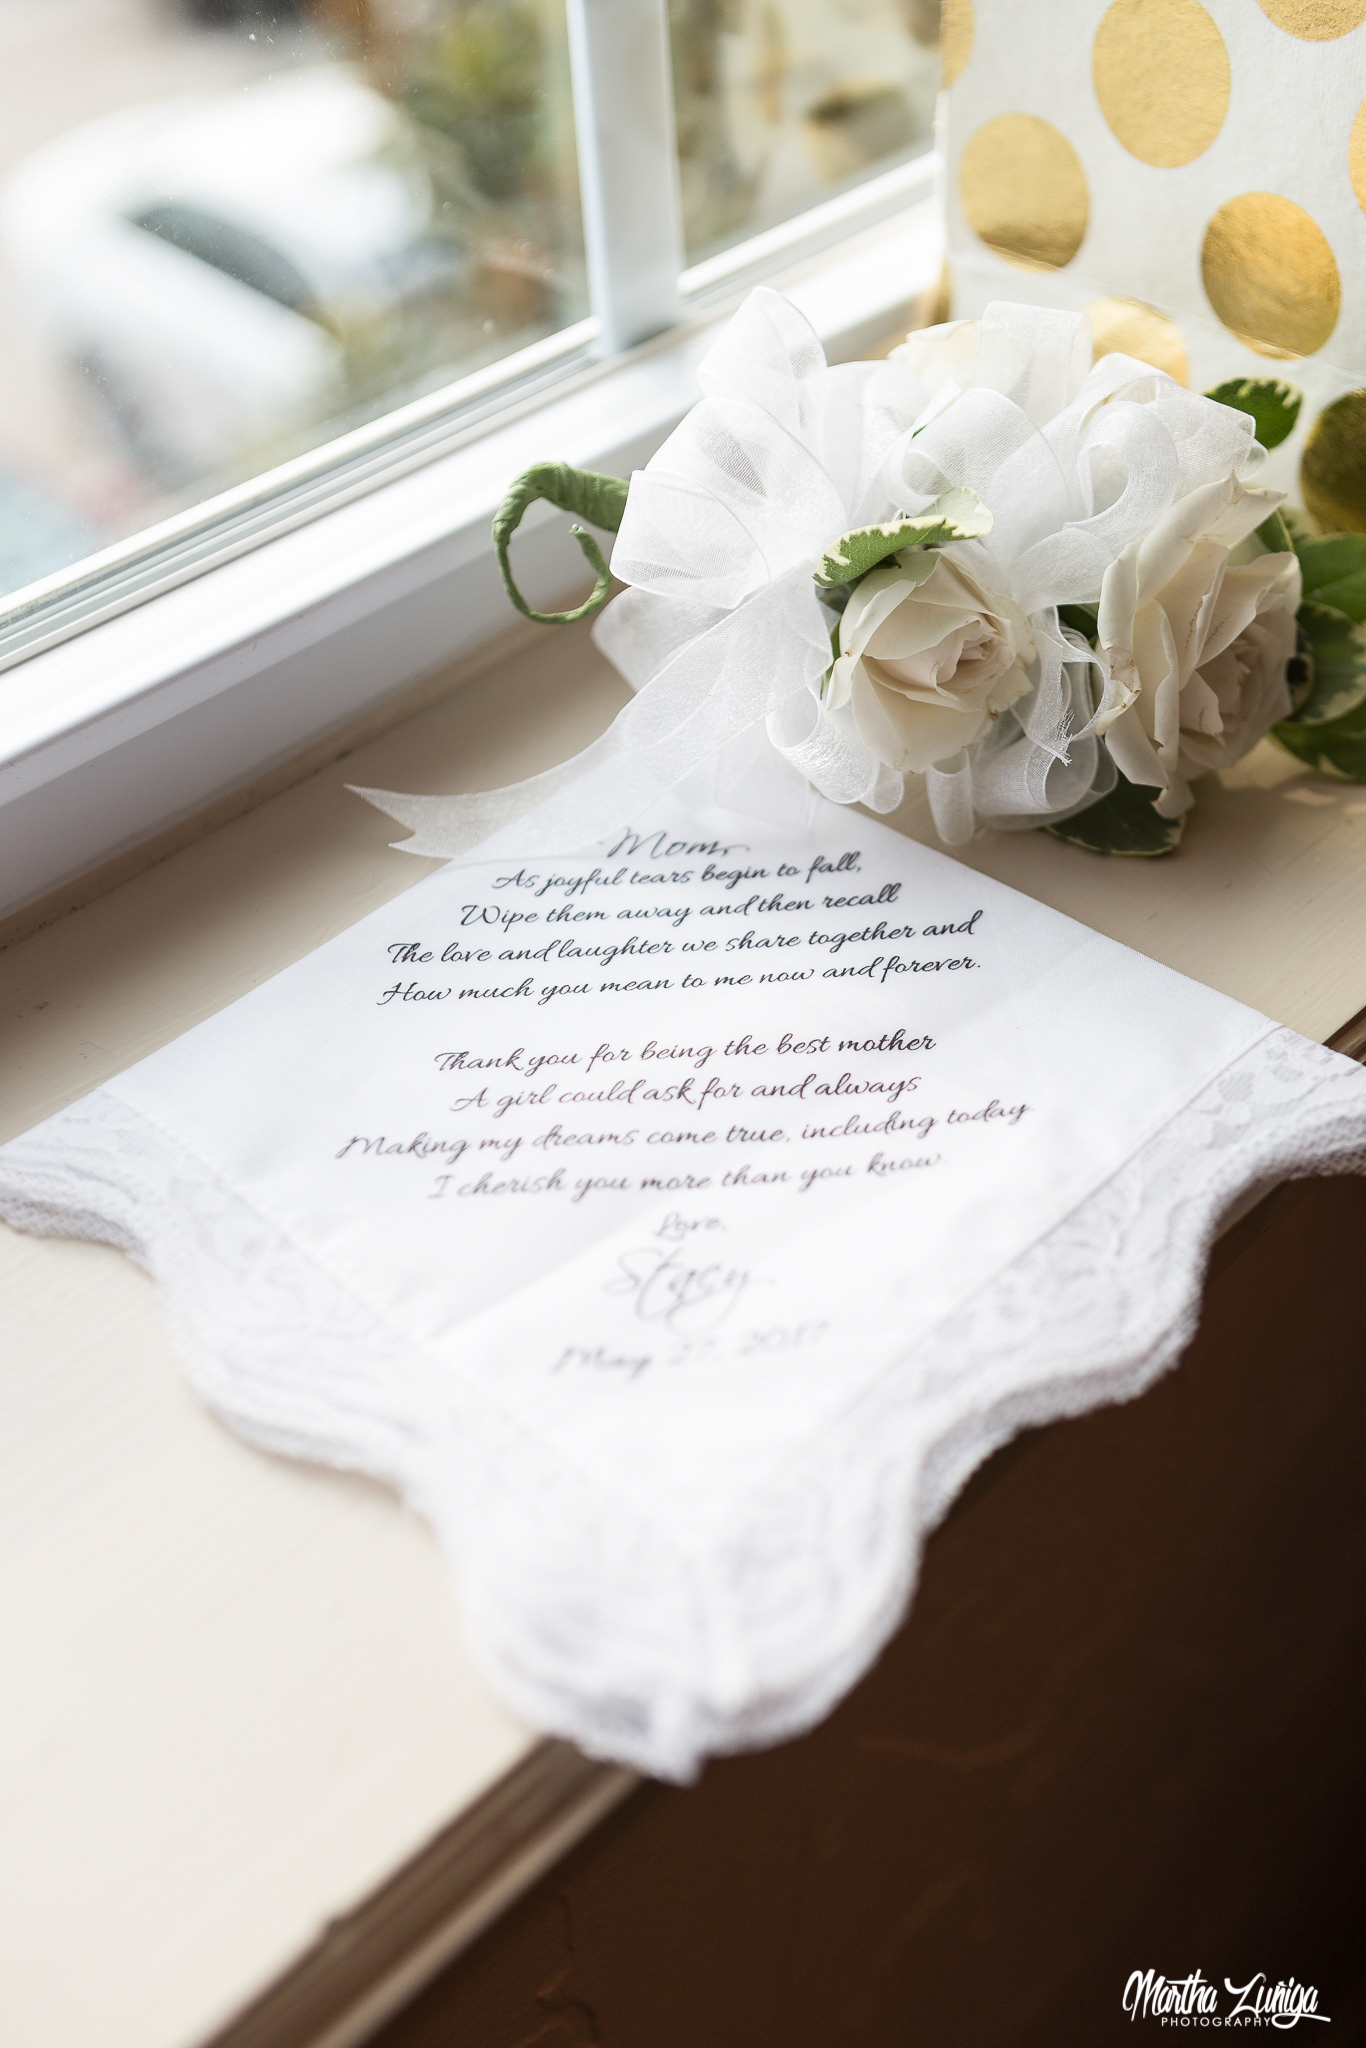 Mom,
As joyful tears begin to fall,
Wipe them away and then recall
The love and laughter we share together and
How much you mean to me now and forever.
Thank you for being the best mother
A girl could ask for and always
Making my dreams come true, including today
I cherish you more than you know.
Love,
Stacy
May 27, 2017
Martha Zuñiga
PHOTOGRAPHY